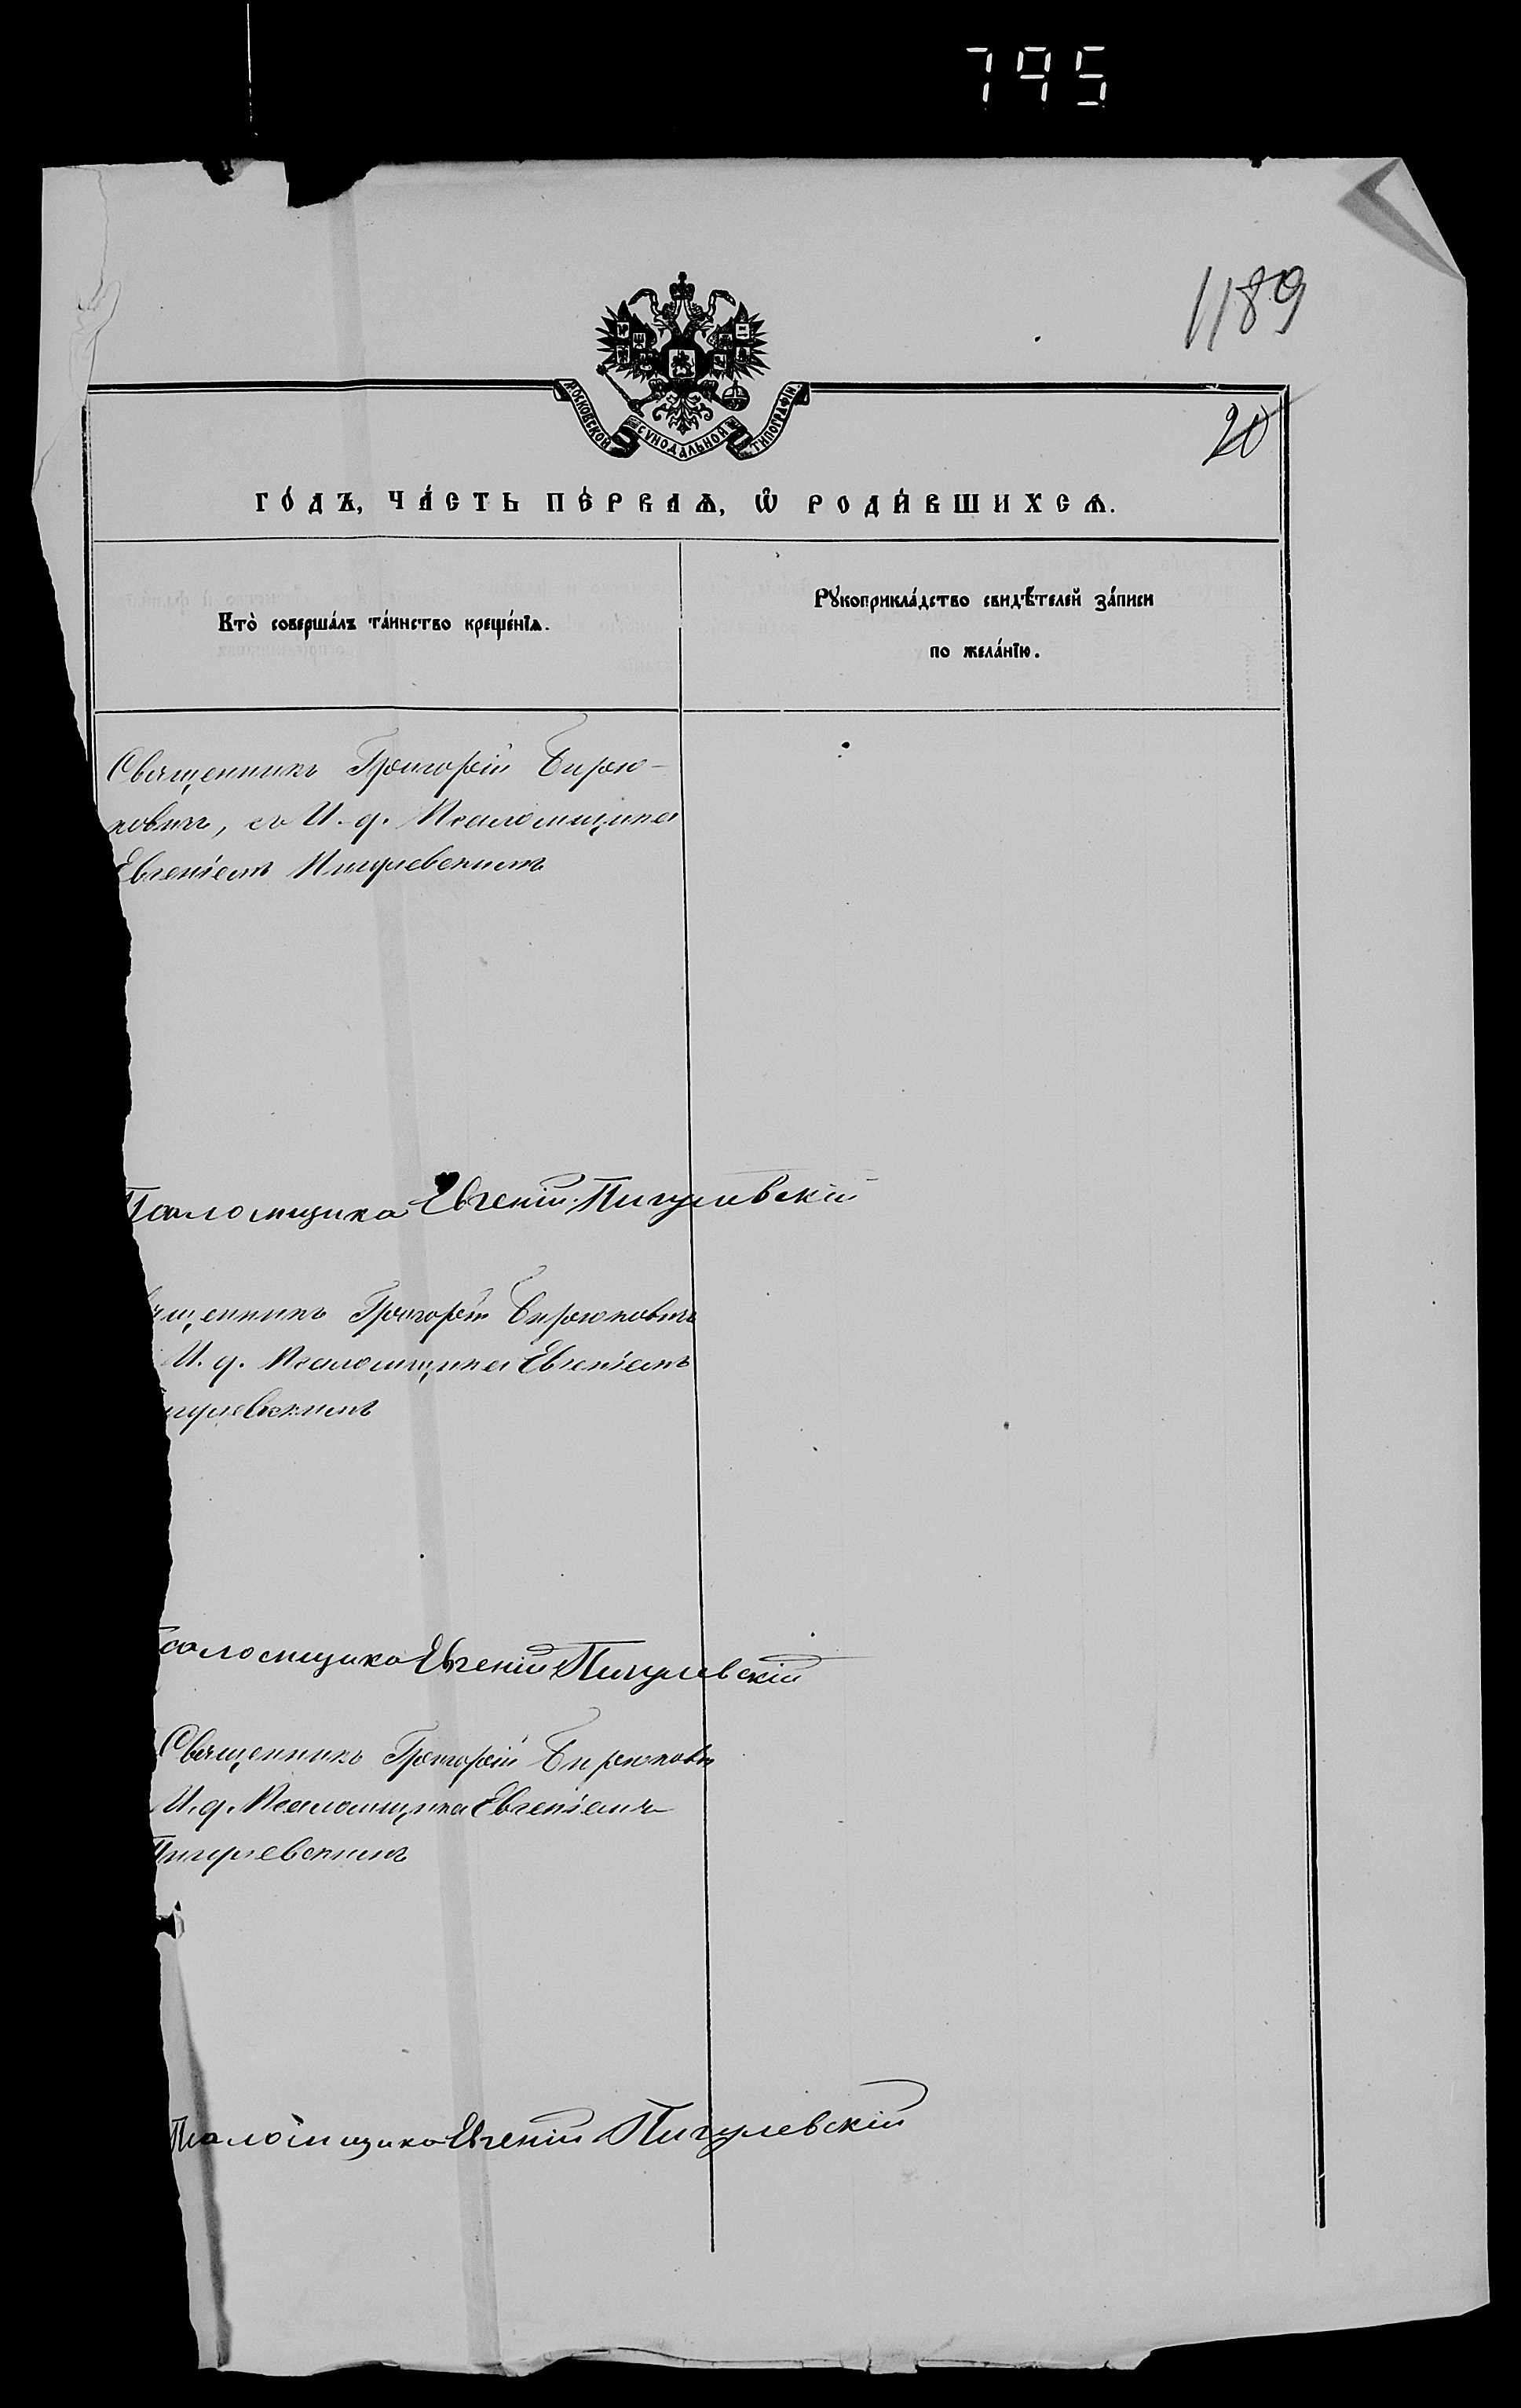 795
1189
МОСКОВСКОЙ СѴНОДАЛЬНОЙ ТИПОГРАФІИ
20
го́дъ, ча́сть пе́рваѧ, ѡ҆ роди́вшихсѧ.
Кто̀ соверша́лъ та́инство креще́нїѧ.
Рꙋкоприкла́дство свидѣ́телей за́писи
по жела́нїю.
Священникъ Григорій Бирю-
ковичъ, съ И. д. Псаломщика
Евгеніемъ Пигулевскимъ
Псаломщика Евгеній Пигулевскій
ященникъ Григорій Бирюковичъ
И. д. Псаломщика Евгеніемъ
игулевскимъ
саломщика Евгеній Пигулевскій
Священникъ Григорій Бирюкович
И. д. Псаломщика Евгеніемъ
Пигулевскимъ
Псаломщика Евгеній Пигулевскій